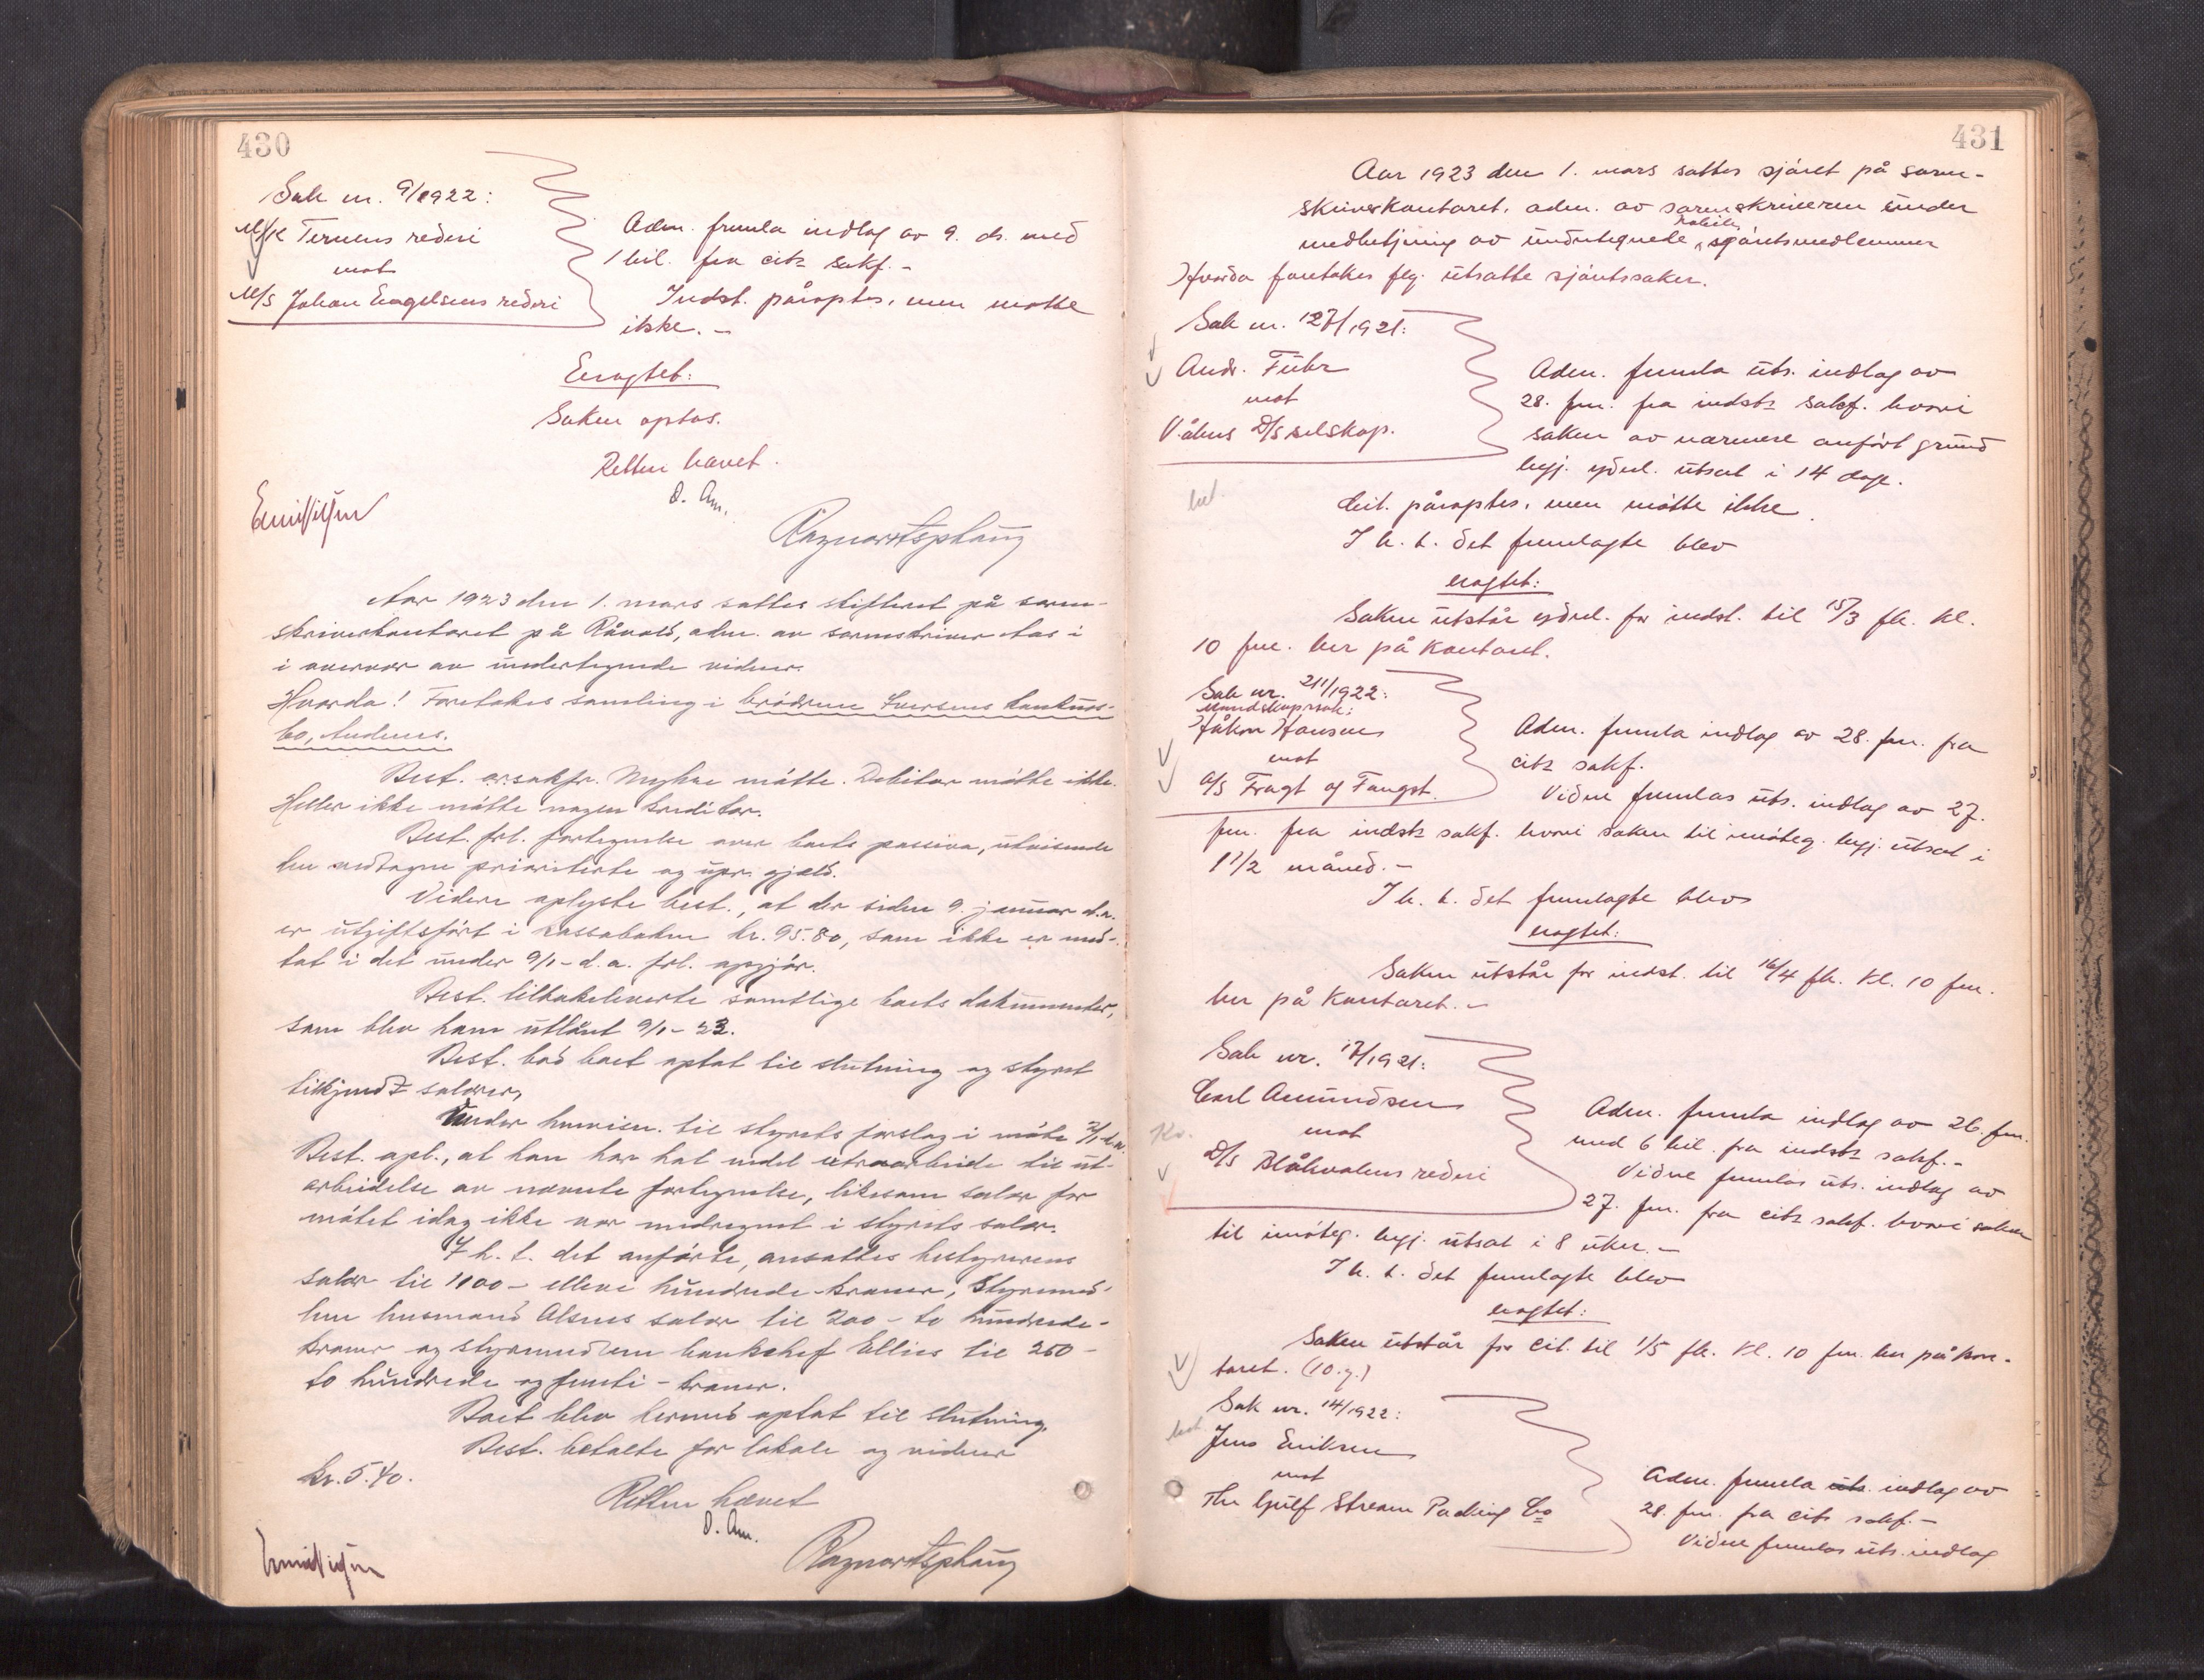 430
Sak nr. 9/1922:
M/K Ternens rederi
mot
M/S Johan Engelsens rederi
Adm. fremla indlæg av 9. ds. med
1 bil. fra citz sakf. -
Indst. påroptes, men møtte
ikke. -
Eragtet:
Saken optas.
Retten hævet.
O. Am.
Ragnar Asphaug
Aar 1923 den 1. mars sattes skifteret på soren-
skriverkontoret på Råvold, adm. av sorenskriver Aas i
i overvær av undertegnede vidner.
Hvorda! Foretokes samling i brødrene Iversens konkurs-
bo, Andenes.
Best. o.r.sakfr. Myhre møtte. Debitor møtte ikke.
Heller ikke møtte nogen kreditor.
Best. frl. fortegnelse over boets passiva, utvisende
den vedtagne prioriterte og upr. gjæld.
Videre oplyste best., at der siden 9. januar d.a.
er utgiftsført i kassaboken kr. 95.80, som ikke er med-
tat i det under 9/1- d.a. frl. opgjør.
Best. tilbakeleverte samtlige boets dokumenter,
som blev ham utlånt 9/1- 23.
Best. bad boet optat til slutning og styret
tilkjendt salærer,
Under henvisn. til styrets forslag i møte 2/1 d.a.
Best. opl., at han har hat endel extraarbeide til ut-
arbeidelse av nævnte fortegnelse, likesom salær for
møtet idag ikke var medregnet i styrets salær.
I h. t. det anførte, ansattes bestyrerens
salær til 1100 - elleve hundrede - kroner, Styremed-
lem husmand Olsens salær til 200 - to hundrede -
kroner og styremedlem bankchef Ellies til 250 -
to hundrede og femti - kroner.
Boet blev hermed optat til slutning.
Best. betalte for lokale og vidner
kr. 5.40.
Retten hævet
O. Am.
Ragnar Asphaug
431
Aar 1923 den 1. mars sattes sjøret på soren-
skriverkontoret, adm. av sorenskriveren under
medbetjening av undertegnede sjøretsmedlemmer
Hvorda foretokes flg. utsatte sjøretssaker.
Sak nr. 127/1921:
Andr. Führ
mot
Våhns D/S selskap.
Adm. fremla uts. indlæg av
28. frm. fra indstz sakf. hvori
saken av nærmere anført grund
begj. yderl. utsat i 14 dage.
Cit. påroptes, men møtte ikke.
I h. t. det fremlagte blev
eragtet:
Saken utstår yderl. for indst. til 15/3 fk. kl.
10 fm. her på kontoret.
Sak nr. 211/1922:
Mandskapssak:
Håkon Hansen
mot
A/S Fragt og Fangst.
Adm. fremla indlæg av 28. frm. fra
citz sakf.
Vidne fremlas uts. indlæg av 27.
frm. fra indstz sakf. hvori saken til imøteg. begj. utsat i
1 1/2 måned. -
I h. t. det fremlagte blev
eragtet:
Saken utstår for indst. til 16/4 fk. kl. 10 fm.
her på kontoret. -
Sak nr. 17/1921:
Carl Amundsen
mot
D/S Blåhvalens rederi
Adm. fremla indlæg av 26. frm.
med 6 bil. fra indstz sakf. -
Vidne fremlas uts. indlæg av
27. frm. fra citz sakf. hvori saken
til imøteg. begj. utsat i 8 uker. -
I h. t. det fremlagte blev
eragtet:
Saken utstår for cit. til 1/5 fk. kl. 10 fm. her på kon-
toret. (10.g.)
Sak nr. 14/1922:
Jens Eriksen
mot
The Gulf Stream Packing Co
Adm. fremla uts. indlæg av
28. frm. fra citz sakf. -
Vidne fremlas uts. indlæg